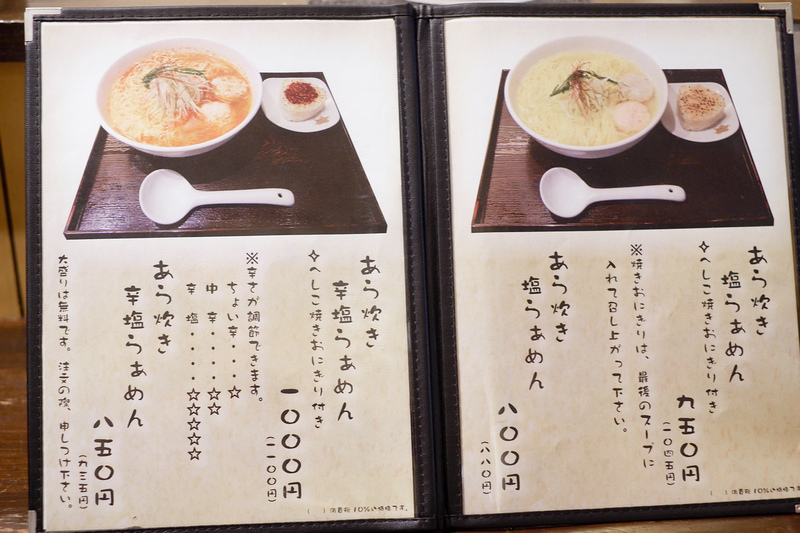 あら炊き
塩らぁめん
✧へしこ焼きおにぎり付き
九五〇円
(一〇四五円)
※焼きおにぎりは、最後のスープに
入れて召し上がって下さい。
あら炊き
塩らぁめん
八〇〇円
(八八〇円)
( )消費税10%の価格です。
あら炊き
辛塩らぁめん
✧へしこ焼きおにぎり付き
一〇〇〇円
(一一〇〇円)
※辛さが調節できます。
ちょい辛・・・☆
中 辛・・・☆☆
辛 塩・・・・☆☆☆☆☆
あら炊き
辛塩らぁめん
八五〇円
(九三五円)
大盛りは無料です。注文の際、申しつけ下さい。
( )消費税10%の価格です。